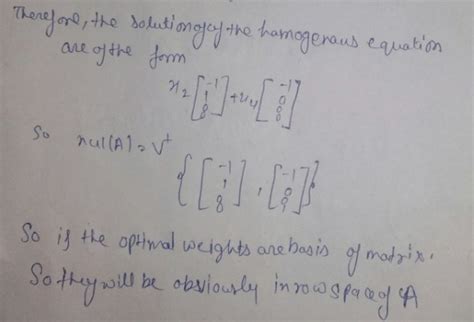 Therefore, the solution of the homogenous equation
are of the form
x₂ [-1 1 0 0] + x₄ [-1 0 0 0]
So nul(A) = V⊥
{ [-1 1 0], [-1 0 0] }
So if the optimal weights are basis of matrix.
So they will be obviously in row space of A